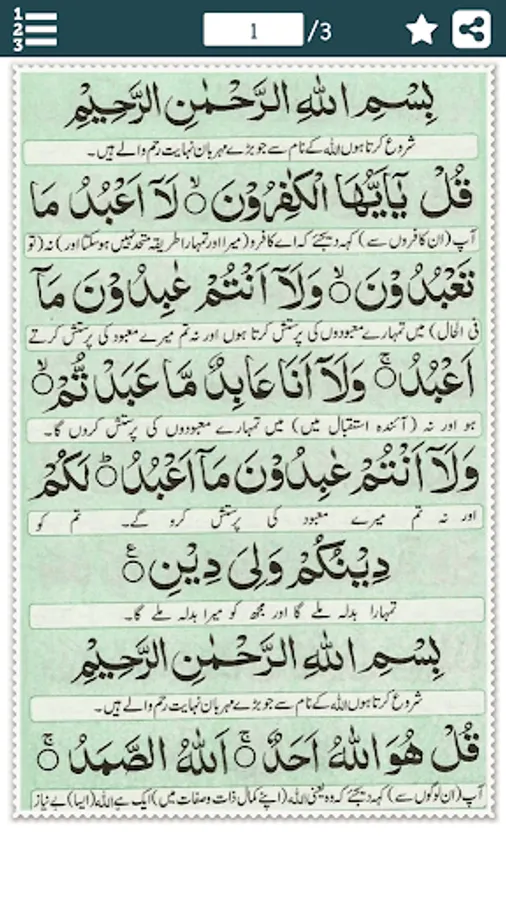 1
2
3
1 /3
بِسْمِ اللّٰهِ الرَّحْمٰنِ الرَّحِيْمِ
شروع کرتا ہوں اللہ کے نام سے جو بڑے مہربان نہایت رحم والے ہیں۔
قُلْ يٰٓاَيُّهَا الْكٰفِرُوْنَ ۙ لَآ اَعْبُدُ مَا
آپ (ان کافروں سے) کہہ دیجئے کہ اے کافرو (میرا اور تمہارا طریقہ متحد نہیں ہو سکتا اور) نہ (تو
تَعْبُدُوْنَ ۙ وَلَآ اَنْتُمْ عٰبِدُوْنَ مَآ
فی الحال) میں تمہارے معبودوں کی پرستش کرتا ہوں اور نہ تم میرے معبود کی پرستش کرتے
اَعْبُدُ ۚ وَلَآ اَنَا عَابِدٌ مَّا عَبَدْتُّمْ ۙ
ہو اور نہ (آئندہ استقبال میں) میں تمہارے معبودوں کی پرستش کروں گا۔
وَلَآ اَنْتُمْ عٰبِدُوْنَ مَآ اَعْبُدُ ؕ لَكُمْ
اور نہ تم میرے معبود کی پرستش کرو گے۔ تم کو
دِيْنُكُمْ وَلِيَ دِيْنِ ۧ
تمہارا بدلہ ملے گا اور مجھ کو میرا بدلہ ملے گا۔
بِسْمِ اللّٰهِ الرَّحْمٰنِ الرَّحِيْمِ
شروع کرتا ہوں اللہ کے نام سے جو بڑے مہربان نہایت رحم والے ہیں۔
قُلْ هُوَ اللّٰهُ اَحَدٌ ۚ اَللّٰهُ الصَّمَدُ ۚ
آپ (ان لوگوں سے) کہہ دیجئے کہ وہ یعنی اللہ (اپنے کمال ذات و صفات میں) ایک ہے اللہ (ایسا) بے نیاز